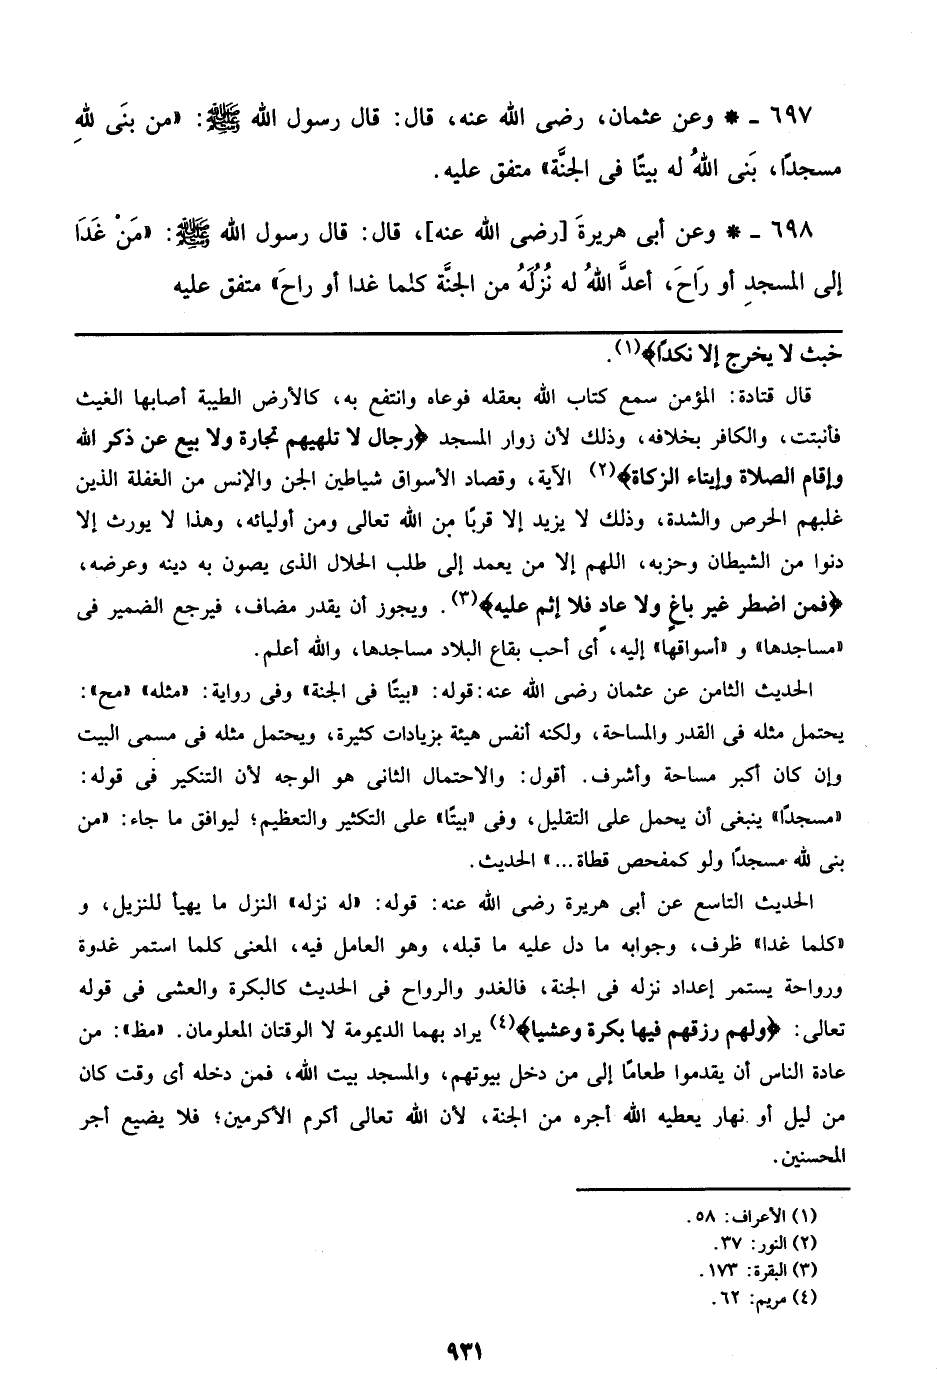 ٦٩٧ ـ * وعن عثمان، رضى الله عنه، قال: قال رسول الله ﷺ: «من بنَى للهِ
مسجدًا، بَنى اللهُ له بيتًا فى الجنَّة» متفق عليه.
٦٩٨ ـ * وعن أبى هريرةَ [رضى الله عنه]، قال: قال رسول الله ﷺ: «مَنْ غَدَا
إلى المسجدِ أو رَاحَ، أعدَّ اللهُ له نُزُلَهُ من الجنَّة كلما غدا أو راحَ» متفق عليه
خبث لا يخرج إلا نكدًا﴾(١).
قال قتادة: المؤمن سمع كتاب الله بعقله فوعاه وانتفع به، كالأرض الطيبة أصابها الغيث
فأنبتت، والكافر بخلافه، وذلك لأن زوار المسجد ﴿رجال لا تلهيهم تجارة ولا بيع عن ذكر الله
وإقام الصلاة وإيتاء الزكاة﴾(٢) الآية، وقصاد الأسواق شياطين الجن والإنس من الغفلة الذين
غلبهم الحرص والشدة، وذلك لا يزيد إلا قربًا من الله تعالى ومن أوليائه، وهذا لا يورث إلا
دنوا من الشيطان وحزبه، اللهم إلا من يعمد إلى طلب الحلال الذى يصون به دينه وعرضه،
﴿فمن اضطر غير باغٍ ولا عادٍ فلا إثم عليه﴾(٣). ويجوز أن يقدر مضاف، فيرجع الضمير فى
«مساجدها» و «أسواقها» إليه، أى أحب بقاع البلاد مساجدها، والله أعلم.
الحديث الثامن عن عثمان رضى الله عنه: قوله: «بيتًا فى الجنة» وفى رواية: «مثله» «مح»:
يحتمل مثله فى القدر والمساحة، ولكنه أنفس هيئة بزيادات كثيرة، ويحتمل مثله فى مسمى البيت
وإن كان أكبر مساحة وأشرف. أقول: والاحتمال الثانى هو الوجه لأن التنكير فى قوله:
«مسجدًا» ينبغى أن يحمل على التقليل، وفى «بيتًا» على التكثير والتعظيم؛ ليوافق ما جاء: «من
بنى لله مسجدًا ولو كمفحص قطاة...» الحديث.
الحديث التاسع عن أبى هريرة رضى الله عنه: قوله: «له نزله» النزل ما يهيأ للنزيل، و
«كلما غدا» ظرف، وجوابه ما دل عليه ما قبله، وهو العامل فيه، المعنى كلما استمر غدوة
ورواحة يستمر إعداد نزله فى الجنة، فالغدو والرواح فى الحديث كالبكرة والعشى فى قوله
تعالى: ﴿ولهم رزقهم فيها بكرة وعشيا﴾(٤) يراد بهما الديمومة لا الوقتان المعلومان. «مظ»: من
عادة الناس أن يقدموا طعامًا إلى من دخل بيوتهم، والمسجد بيت الله، فمن دخله أى وقت كان
من ليل أو نهار يعطيه الله أجره من الجنة، لأن الله تعالى أكرم الأكرمين؛ فلا يضيع أجر
المحسنين.
(١) الأعراف: ٥٨.
(٢) النور: ٣٧.
(٣) البقرة: ١٧٣.
(٤) مريم: ٦٢.
٩٣١